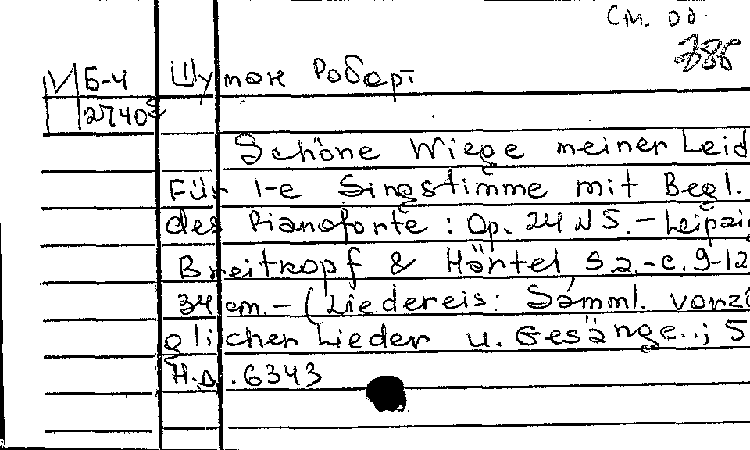 см. об.
И Б-4 Шуман Роберт
2740
Schöne Wiege meiner Leid
Für 1-e Singstimme mit Begl.
des Pianoforte : Op. 24 N 5. - Leipzi
Breitkopf & Härtel S.a. - c. 9-12
34 cm. - (Liedereis: Samml. vorzü
glicher Lieder u. Gesänge..; 5
Н.д. 6343